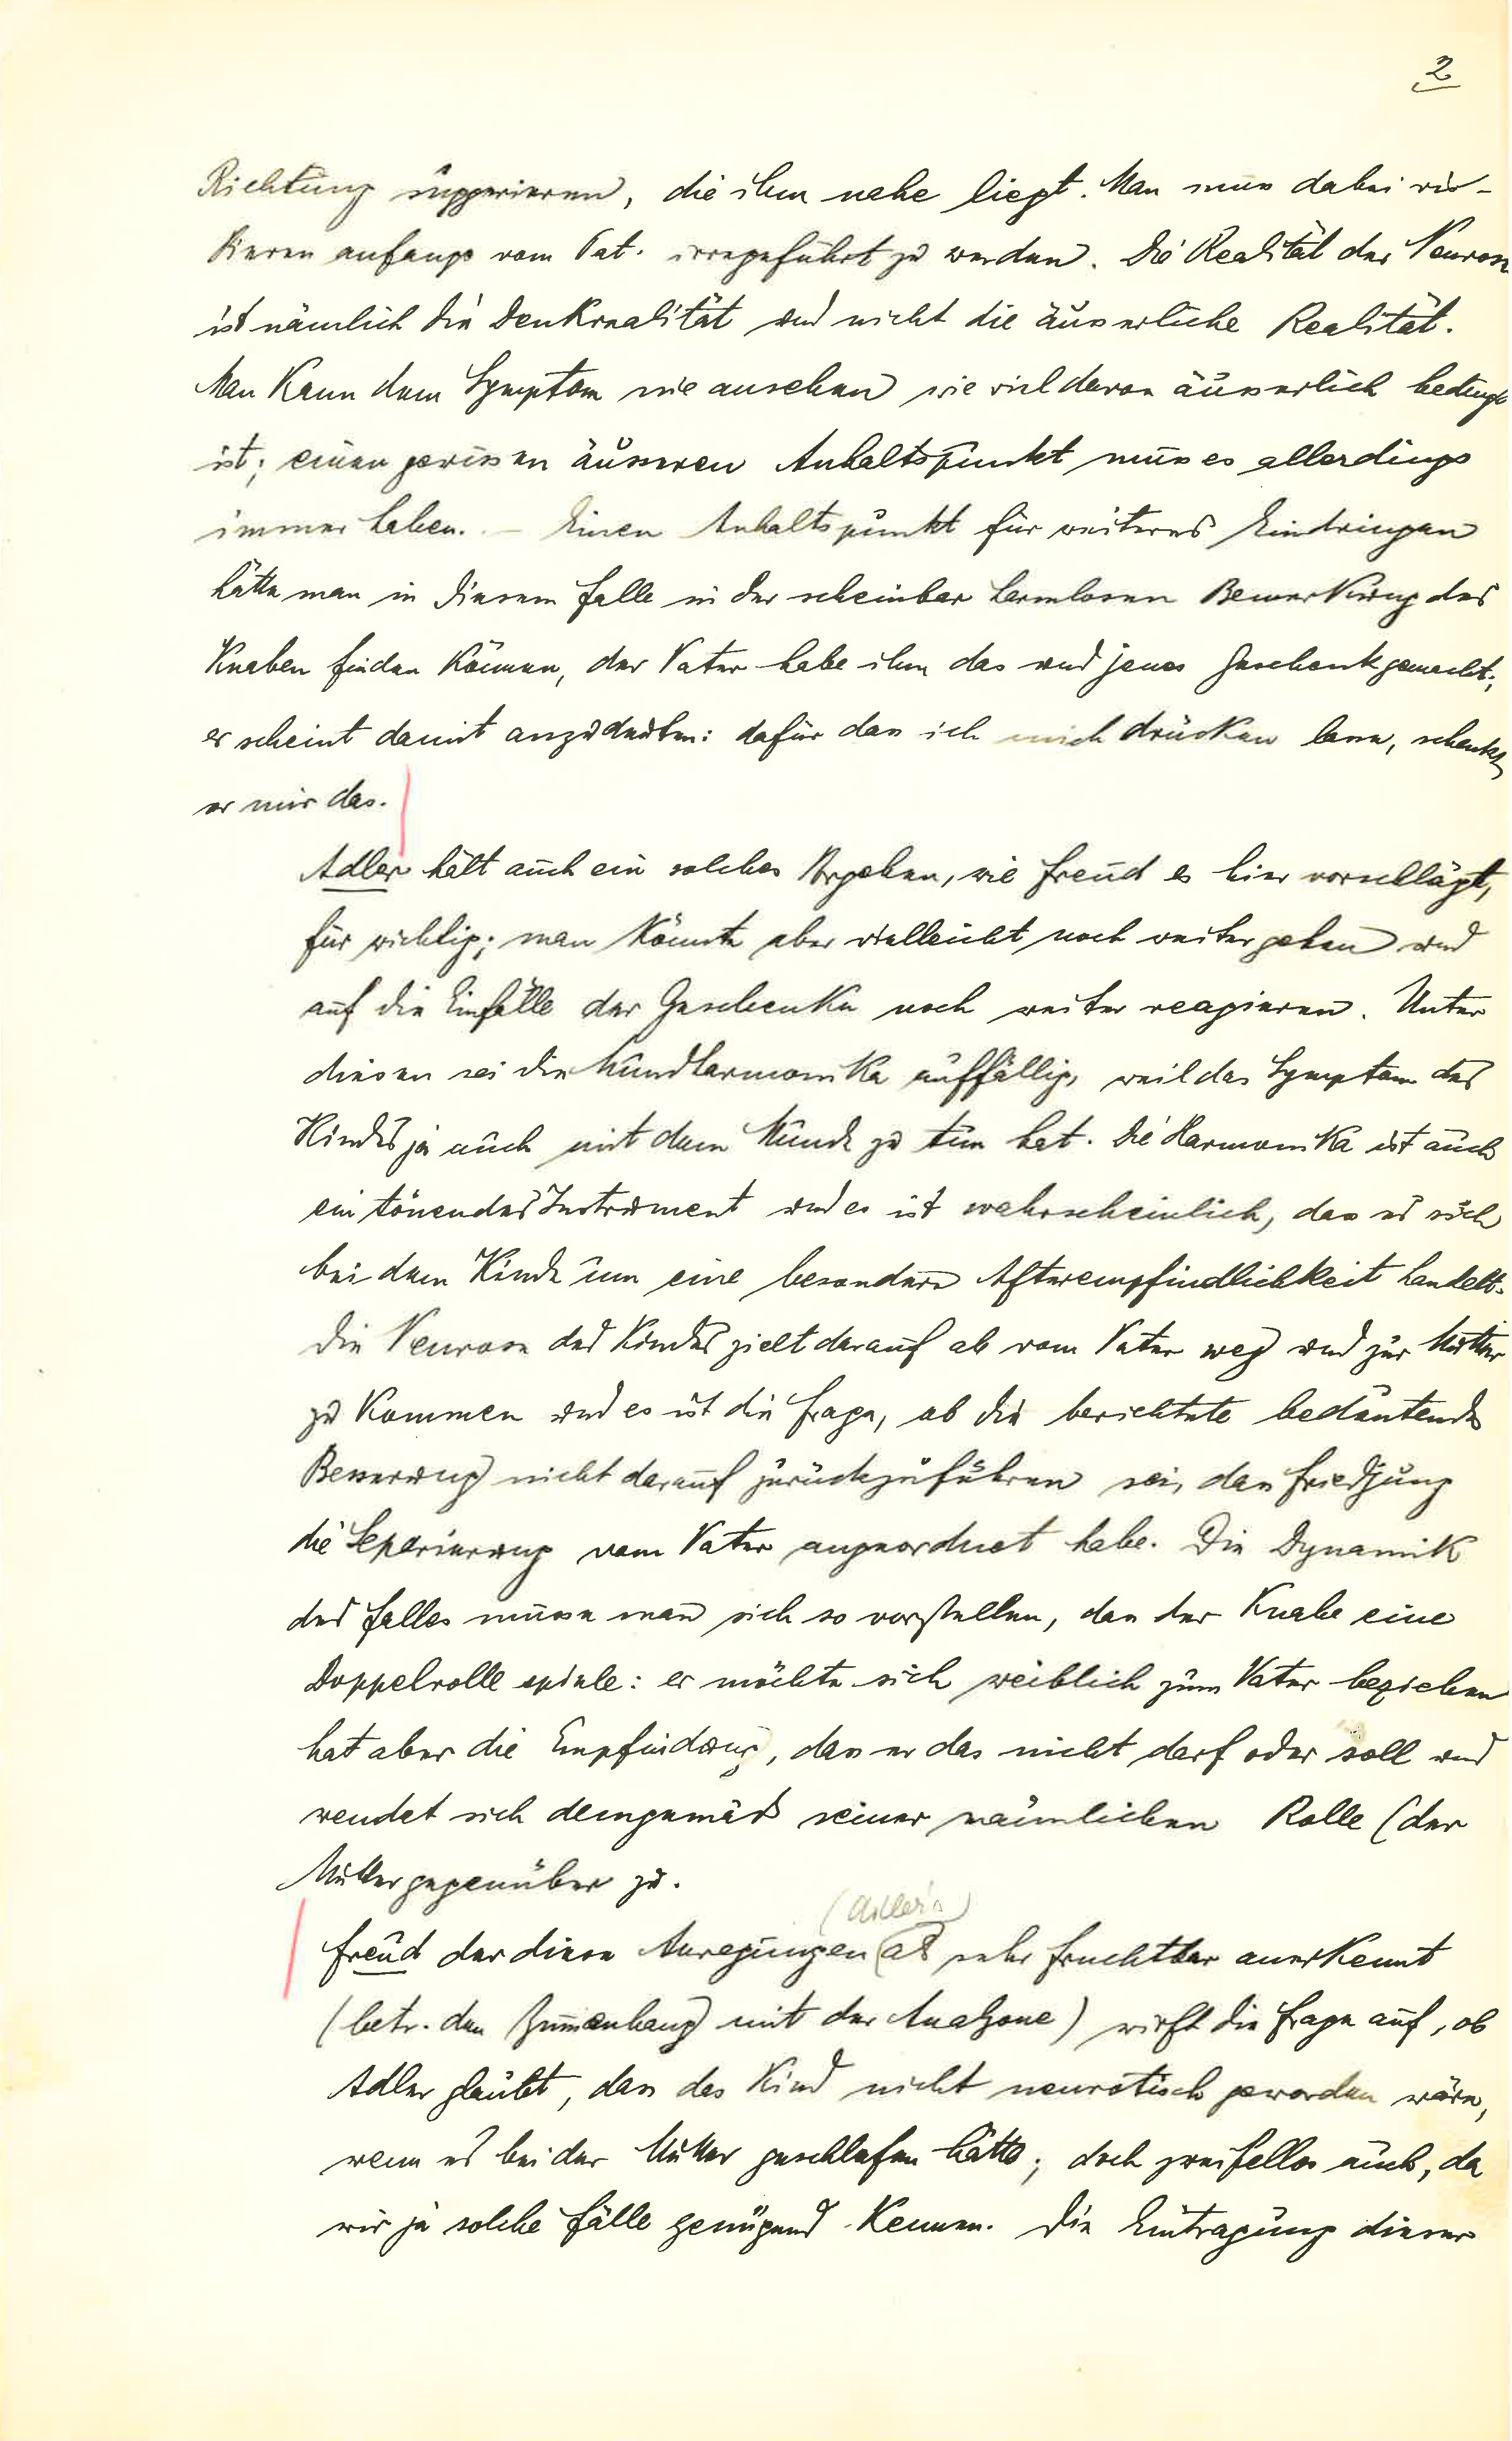 2
Richtung suggerieren, die ihm nahe liegt. Man muss dabei ris-
kieren anfangs vom Pat. irregeführt zu werden. Die Realität der Neurose
ist nämlich die Denkrealität und nicht die äusserliche Realität.
Man kann dem Symptom nie ansehen wie viel davon äusserlich bedingt
ist; einen gewissen äusseren Anhaltspunkt muss es allerdings
immer haben. – Einen Anhaltspunkt für weiteres Eindringen
hätte man in diesem Falle in der scheinbar harmlosen Bemerkung des
Knaben finden können, der Vater habe ihm das und jenes Geschenk gemacht;
er scheint damit anzudeuten: dafür dass ich mich drücken lasse, schenkt
er mir das.
Adler hält auch ein solches Vorgehen, wie Freud es hier vorschlägt,
für richtig; man könnte aber vielleicht noch weiter gehen und
auf die Einfälle der Geschenke noch weiter reagieren. Unter
diesen sei die Mundharmonika auffällig, weil das Symptom des
Kindes ja auch mit dem Munde zu tun hat. Die Harmonika ist auch
ein tönendes Instrument und es ist wahrscheinlich, dass es sich
bei dem Kinde um eine besondere Afterempfindlichkeit handelt.
Die Neurose des Kindes zielt darauf ab vom Vater weg und zur Mutter
zu kommen und es ist die Frage, ob die berichtete bedeutende
Besserung nicht darauf zurückzuführen sei, dass Friedjung
die Separierung vom Vater angeordnet habe. Die Dynamik
des Falles müsse man sich so vorstellen, dass der Knabe eine
Doppelrolle spiele: er möchte sich weiblich zum Vater beziehen
hat aber die Empfindung, dass er das nicht darf oder soll und
wendet sich demgemäss seiner männlichen Rolle (der
Mutter gegenüber zu.
(Adlers)
Freud der diese Anregungen als sehr fruchtbar anerkennt
(betr. den Zusammenhang mit der Analzone) wirft die Frage auf, ob
Adler glaubt, dass das Kind nicht neurotisch geworden wäre,
wenn es bei der Mutter geschlafen hätte; doch zweifellos auch, da
wir ja solche Fälle genügend kennen. Die Eintragung dieser